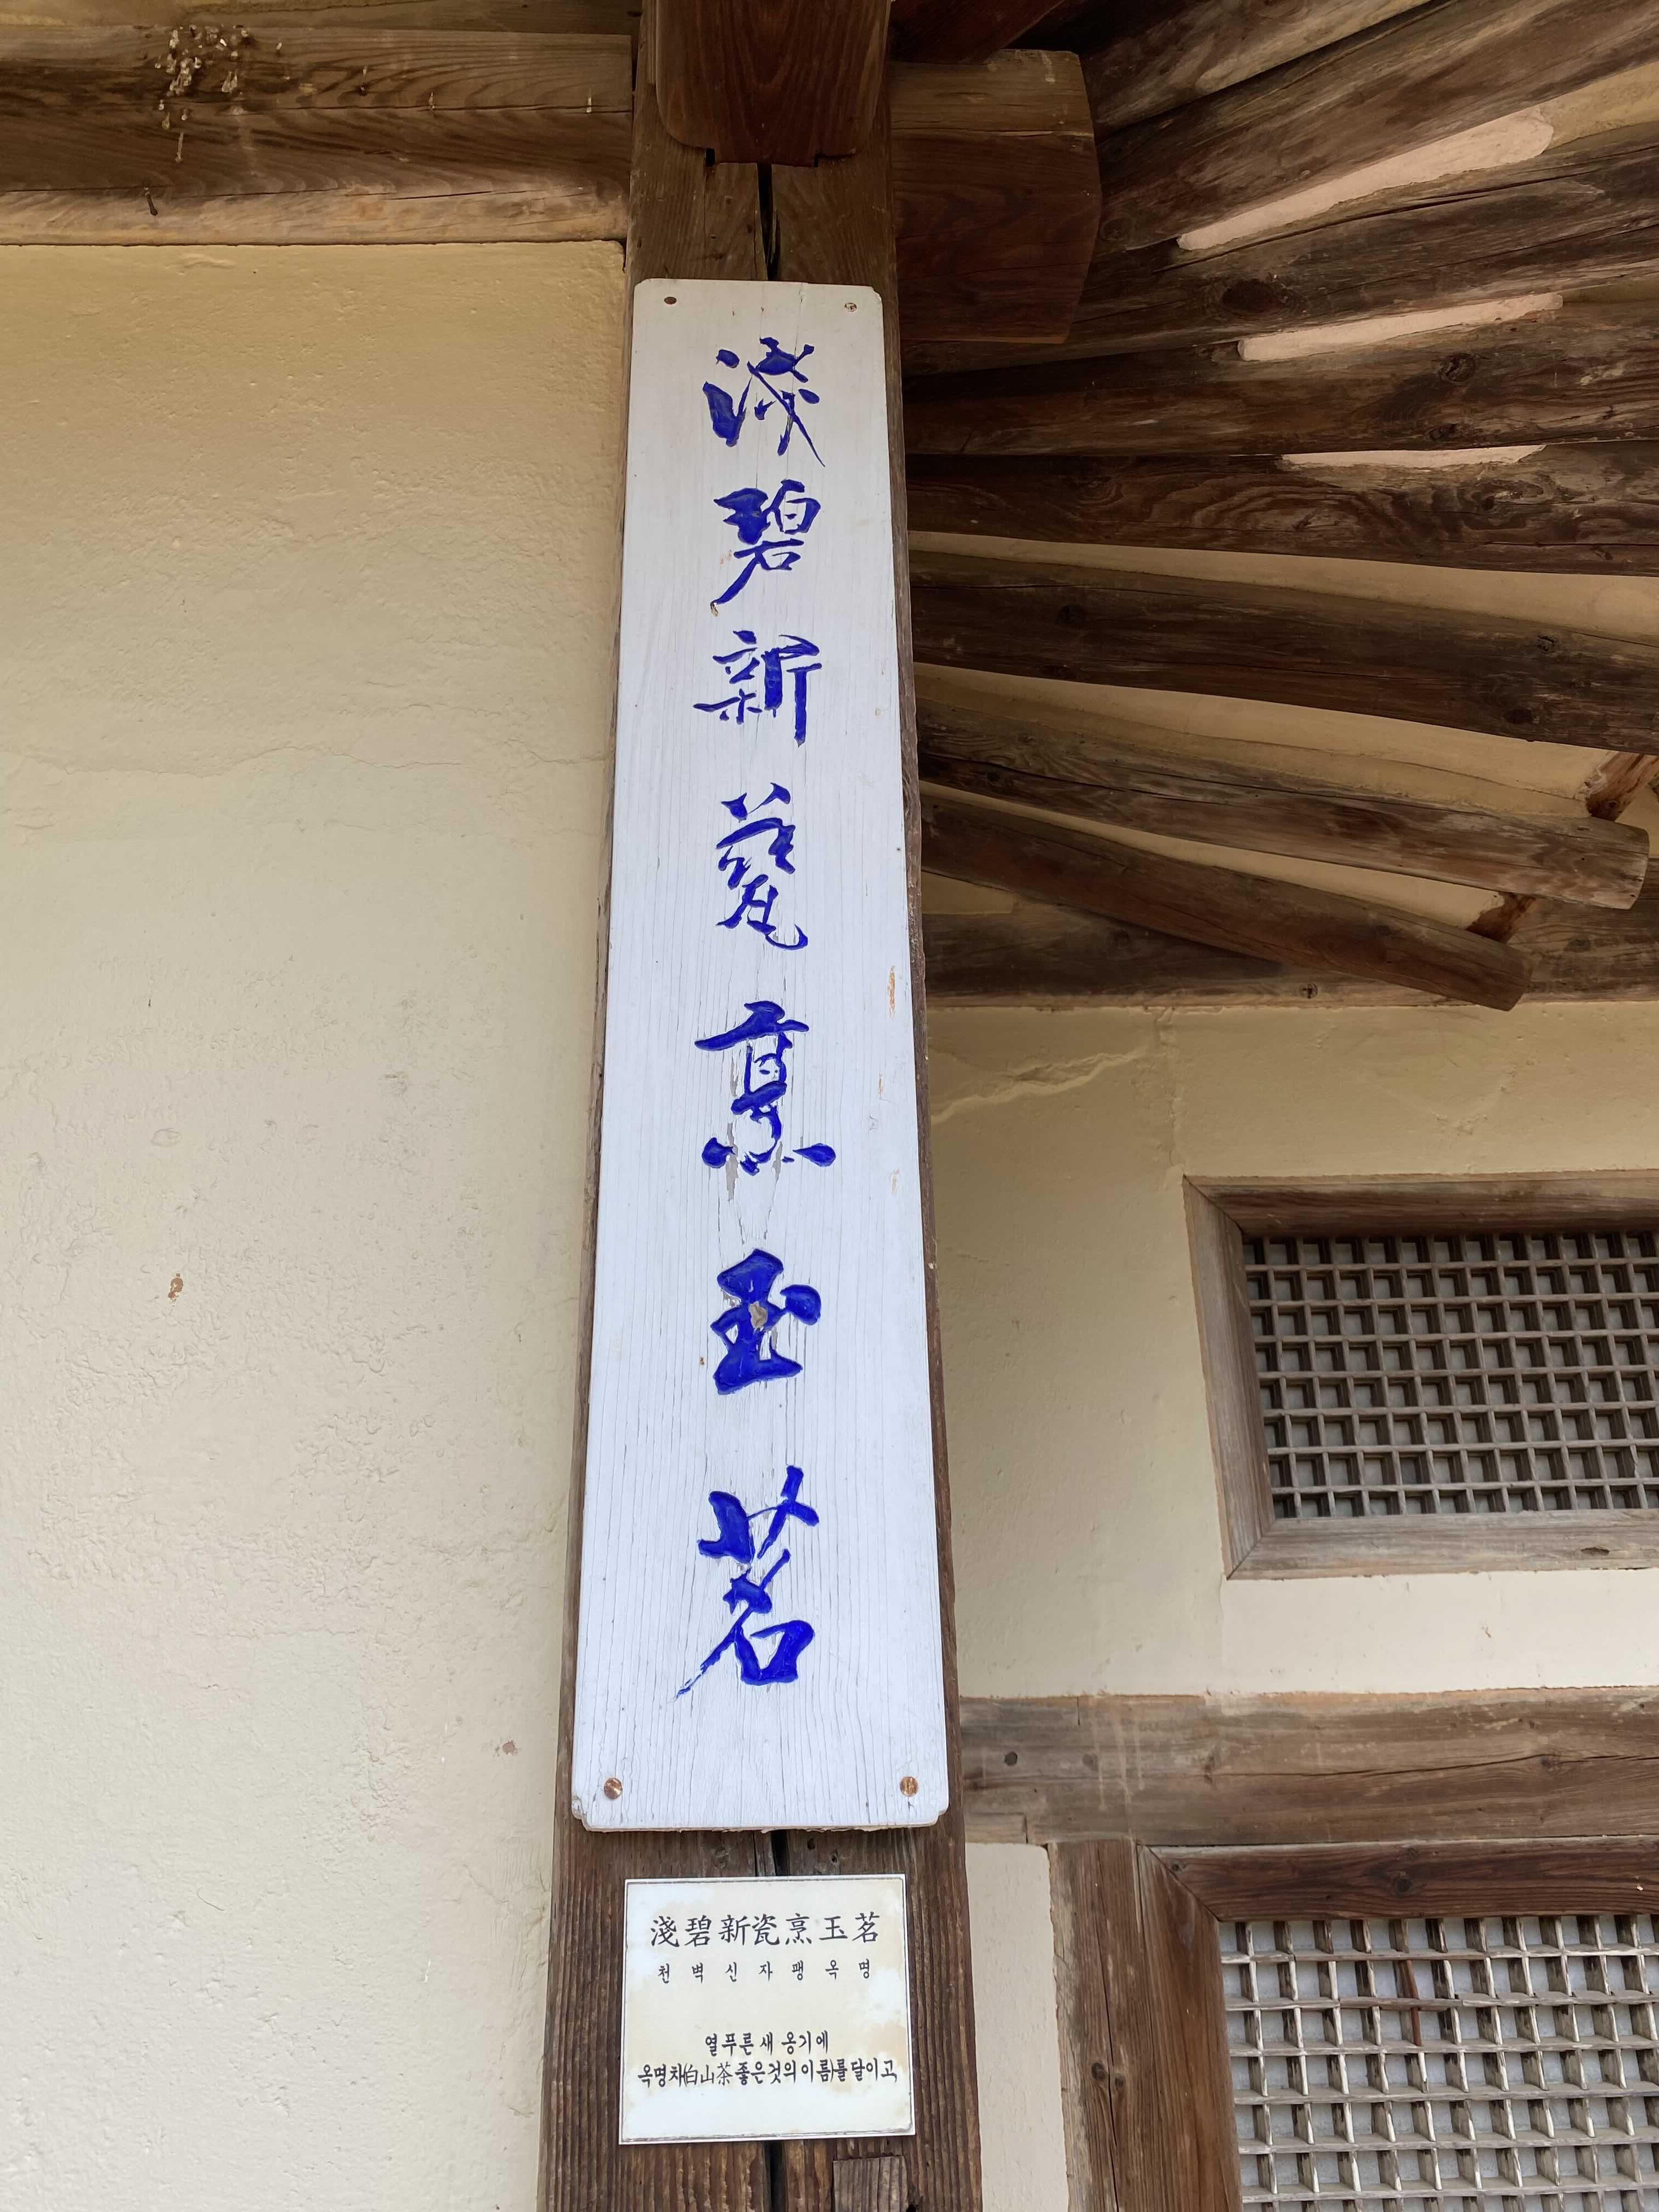 淺碧新瓷烹玉茗
淺碧新瓷烹玉茗
천벽신자팽옥명
열푸른 새 옹기에
옥명차(白山茶 좋은것의 이름)를 달이고,